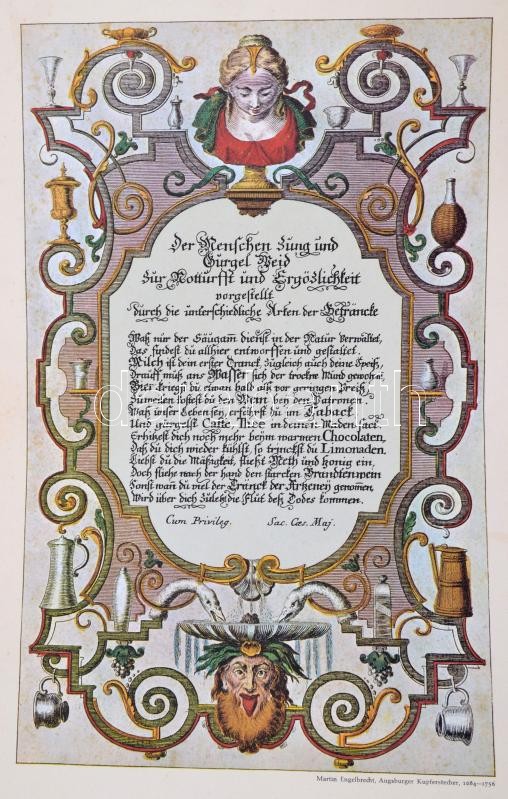 Der Menschen Zung und
Gurgel Weid
Zur Notturfft und Ergözlichkeit
vorgestellt
durch die unterschiedliche Arten der Geträncke
Waß nur der Säugam̄ dienst in der Natur verwaltet,
Das findest du allhier entworffen und gestaltet.
Milch ist dein erster Tranck zugleich auch deine Speiß,
Drauff muß ans Wasser sich der trockne Mund
Bier kriegst du etwan bald ūm vor geringen Preiß
Zuweilen kostest du den Wein bey den Patronen
Waß unser Leben sey, erfährst du im Taback
Und gurgelst Caffe, Thee in deinen Maden-sack.
Erhitzest dich noch mehr beym warmen Chocolaten,
Daß du dich wieder kühlst, so trinckst du Limonaden.
Liebst du die Mäßigkeit, fließt Meth und Honig ein,
Doch fliehe nach der hand den starcken Brandtenwein
Sonst wan̄ du viel der Tränck der Artzeney genom̄en
Wird über dich zuletz die Flut deß Todes kommen.
Cum Privileg. Sac. Cæs. Maj.
Martin Engelbrecht, Augsburger Kupferstecher, 1684—1756